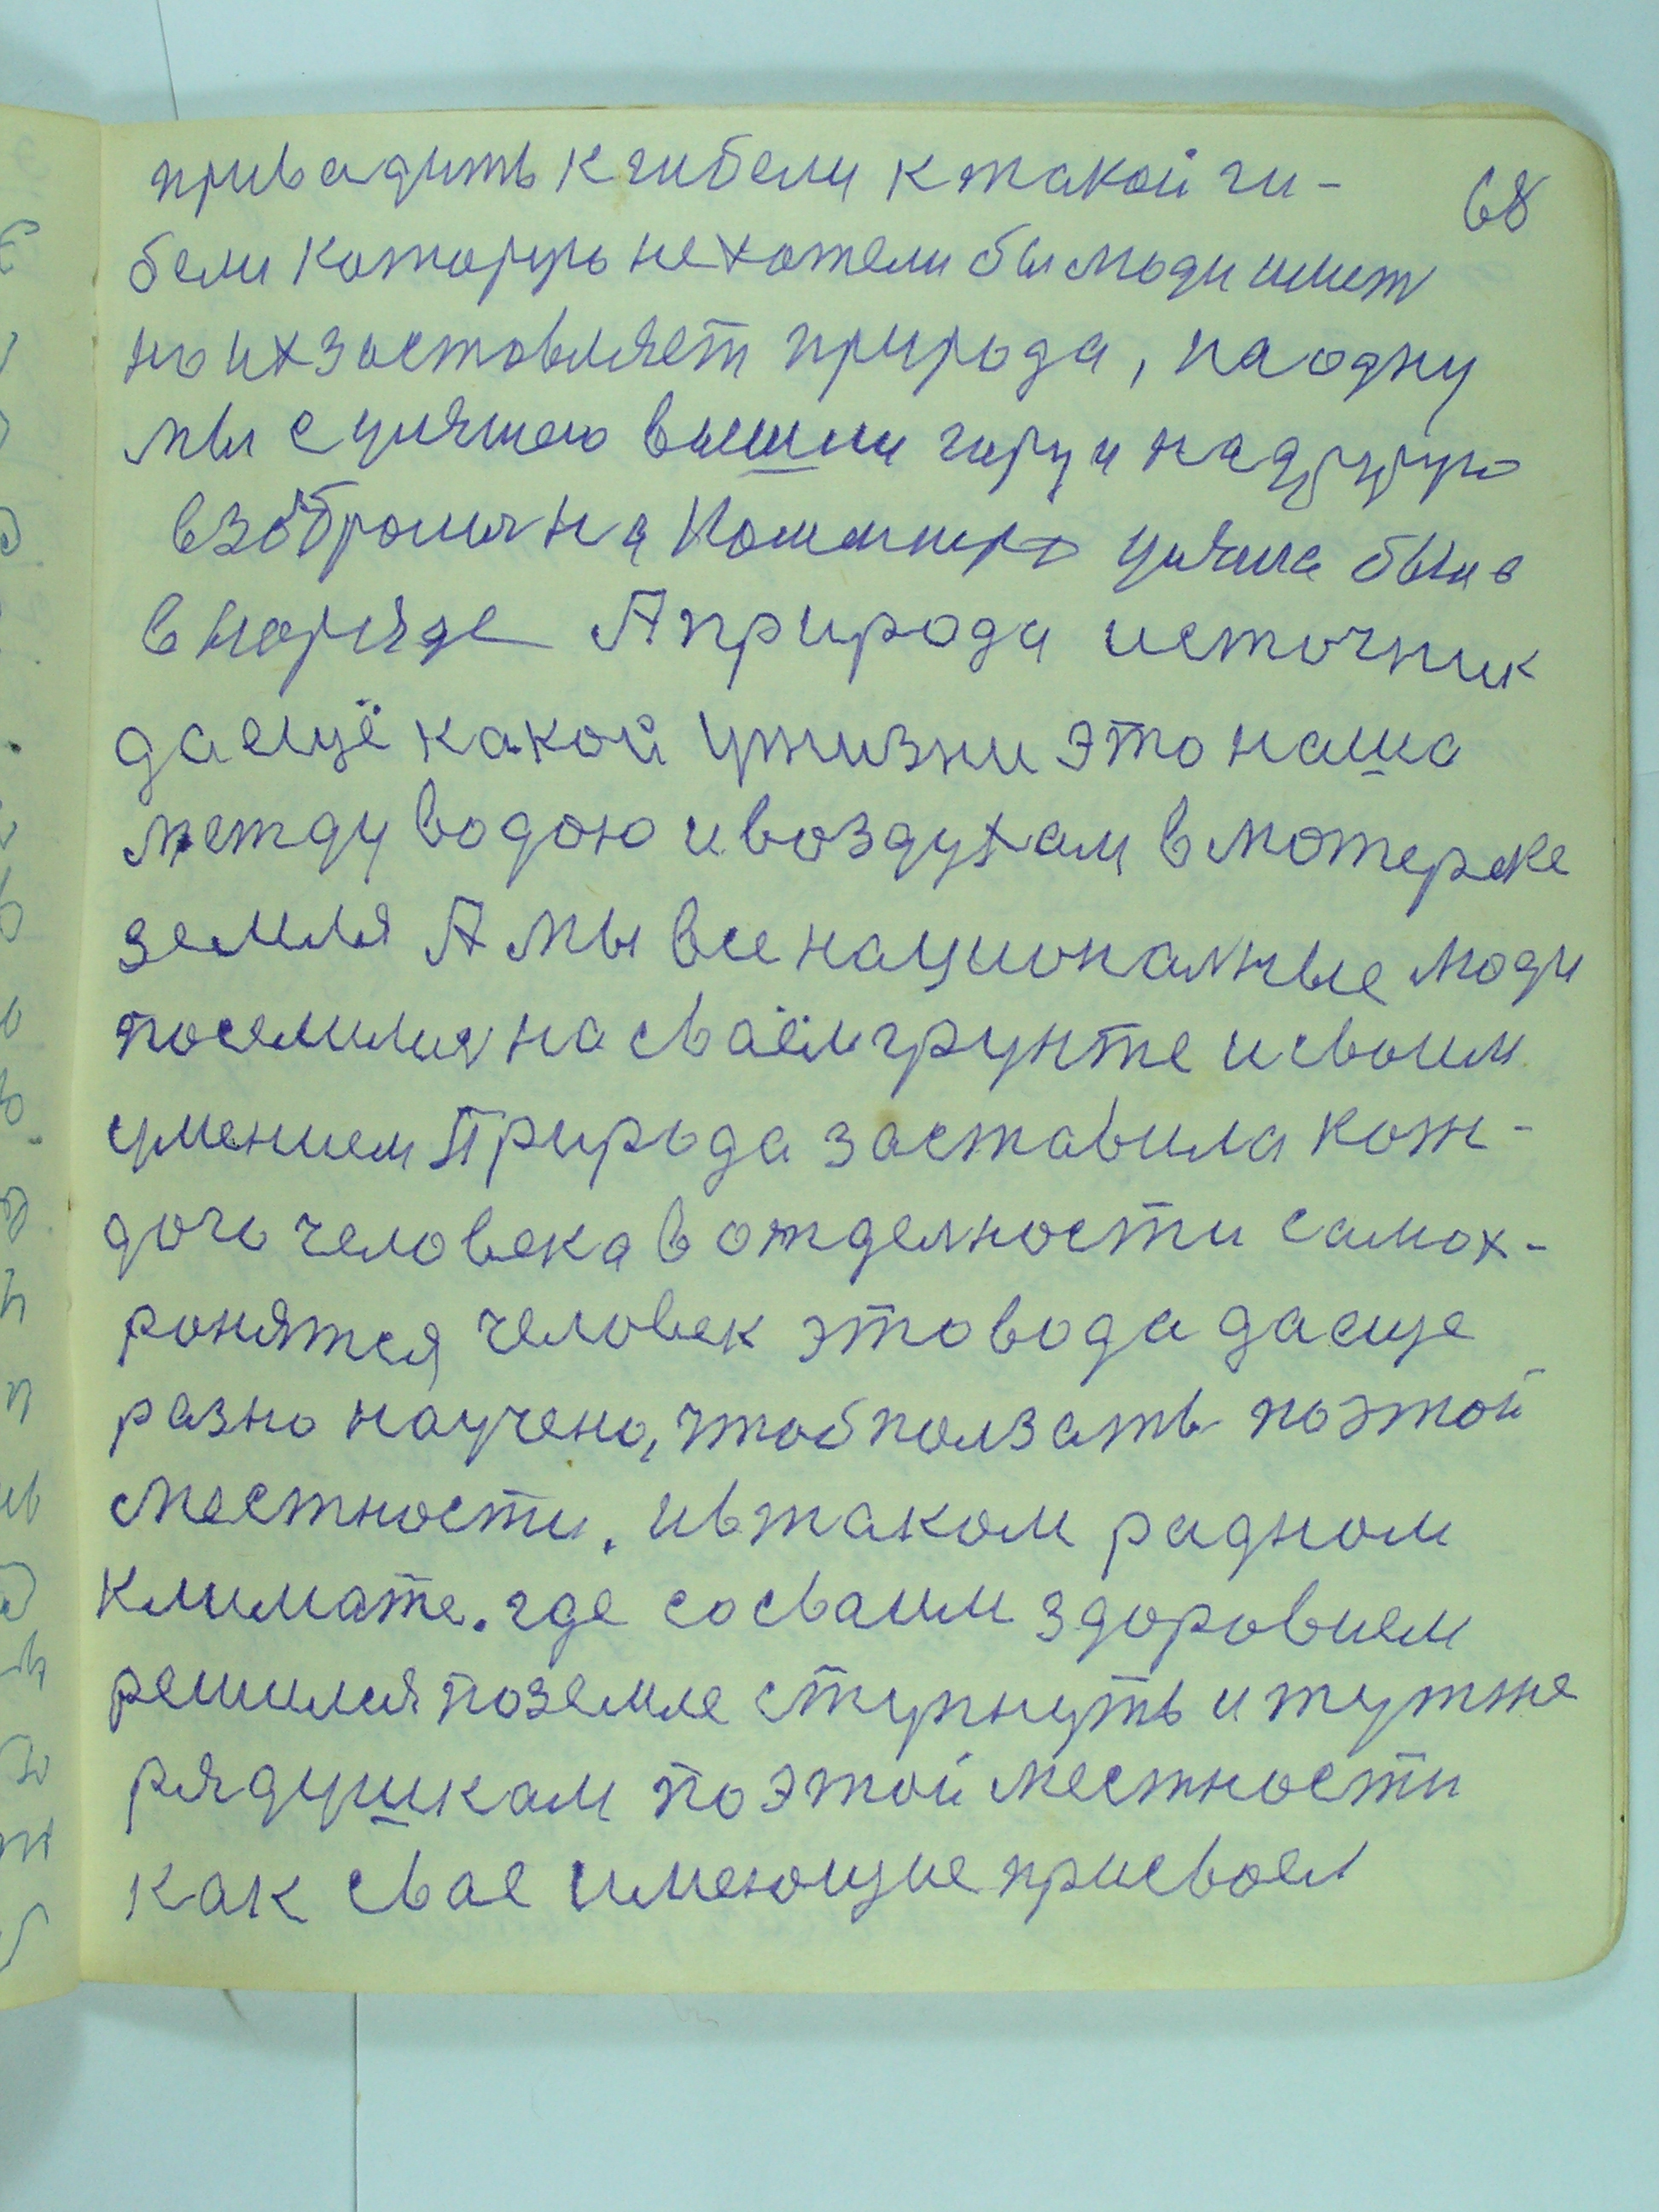 68
привадить к гибели к такой ги-
бели которую не хотели бы люди имет
но их заставляет природа, на одну
мы с вышли гору и на другую
взабролися на была
в наряде А природа источник
да ещё какой у жизни это наша
между водою и воздухам в матерке
земля А мы все национальные люди
поселился на сваём грунте и своим
умением Природа заставила кож-
дого человека в отделности самох-
ронятся человек это вода да еще
разно научено, чтоб ползать по этой
местности. и в таком радном
климате. где со сваим здоровием
решился по земле ступнуть и тут же
рядушкам по этой местности
как свае имеющие присвоел